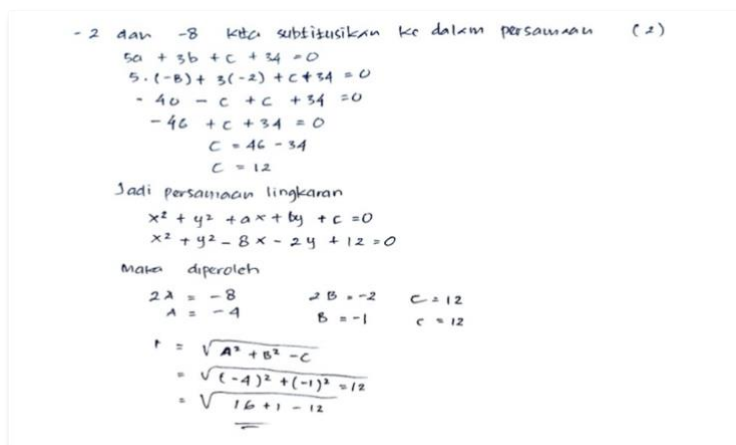 -2 dan -8 kita subtitusikan ke dalam persamaan (2)
5a + 3b + c + 34 = 0
5.(-8) + 3(-2) + c + 34 = 0
- 40 - 6 + c + 34 = 0
- 46 + c + 34 = 0
C = 46 - 34
C = 12
Jadi persamaan lingkaran
x² + y² + ax + by + c = 0
x² + y² - 8x - 2y + 12 = 0
Maka diperoleh
2A = -8 2B = -2 C = 12
A = -4 B = -1 C = 12
r = √A² + B² - C
= √(-4)² + (-1)² - 12
= √16 + 1 - 12